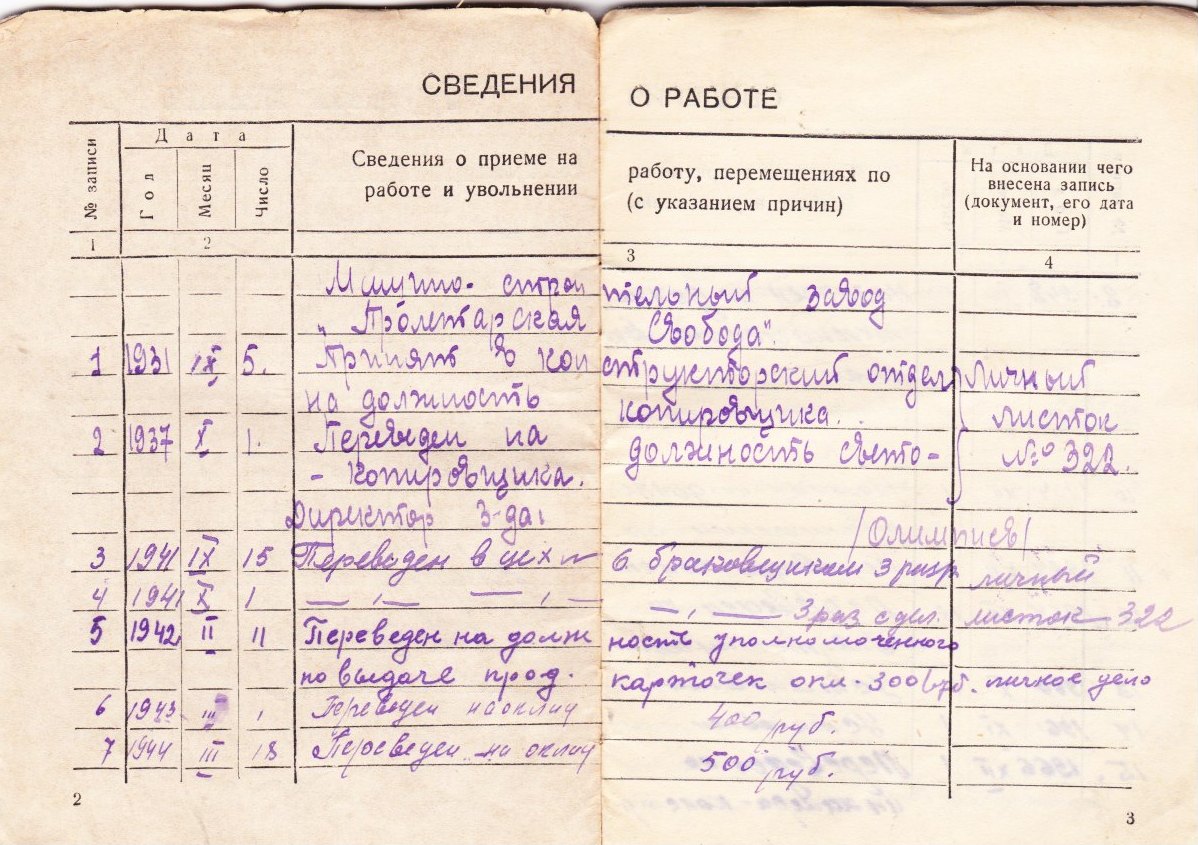 СВЕДЕНИЯ О РАБОТЕ
№ записи
Дата
Год
Месяц
Число
Сведения о приеме на работу, перемещениях по
работе и увольнении (с указанием причин)
На основании чего
внесена запись
(документ, его дата
и номер)
1 2 3 4
Машино-строительный завод
"Пролетарская Свобода".
1 1931 IX 5. Принят в конструкторский отдел Личный
на должность копировщика. листок
2 1937 X 1. Переведен на должность свето- № 322.
- копировщика.
Директор з-да: /Олимпиев/
3 1941 IX 15 Переведен в цех № 6. браковщиком 3 разр. личный
4 1941 X 1 — " — — " — — " — 3 раз сдел. листок 322
5 1942 II 11 Переведен на должность уполномоченного
по выдаче прод. карточек окл. 300 руб. личное дело
6 1943 III 1 Переведен на оклад 400 руб.
7 1944 III 18 Переведен на оклад 500 руб.
2
3